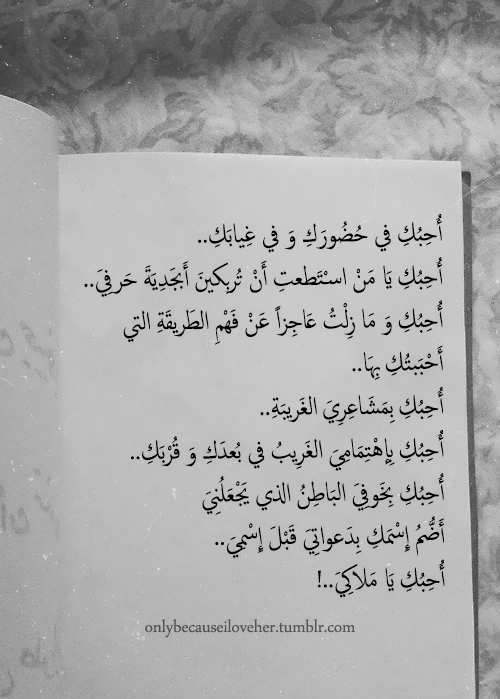 أُحِبُكِ في حُضُورَكِ وَ في غِيابَكِ..
أُحِبُكِ يَا مَنْ اسـْتَطعتِ أَنْ تُربِكينَ أَبجَدِيَةَ حَرفِيَ..
أُحِبُكِ وَ مَا زِلْتُ عَاجِزاً عَنْ فَهْمِ الطَريقَةِ التي
أَحْبَبتُكِ بِهَا..
أُحِبُكِ بِمَشَاعِرِيَ الغَريبَةِ..
أُحِبُكِ بِإهْتِمَامِيَ الغَرِيبُ في بُعدَكِ وَ قُرْبَكِ..
أُحِبُكِ بِخَوفِيَ البَاطِنُ الذي يَجْعَلُنِيَ
أَضُّمُ إِسْمَكِ بِدَعواتِيَ قَبْلَ إِسْمِيَ..
أُحِبُكِ يَا مَلاكِيَ..!
onlybecauseiloveher.tumblr.com